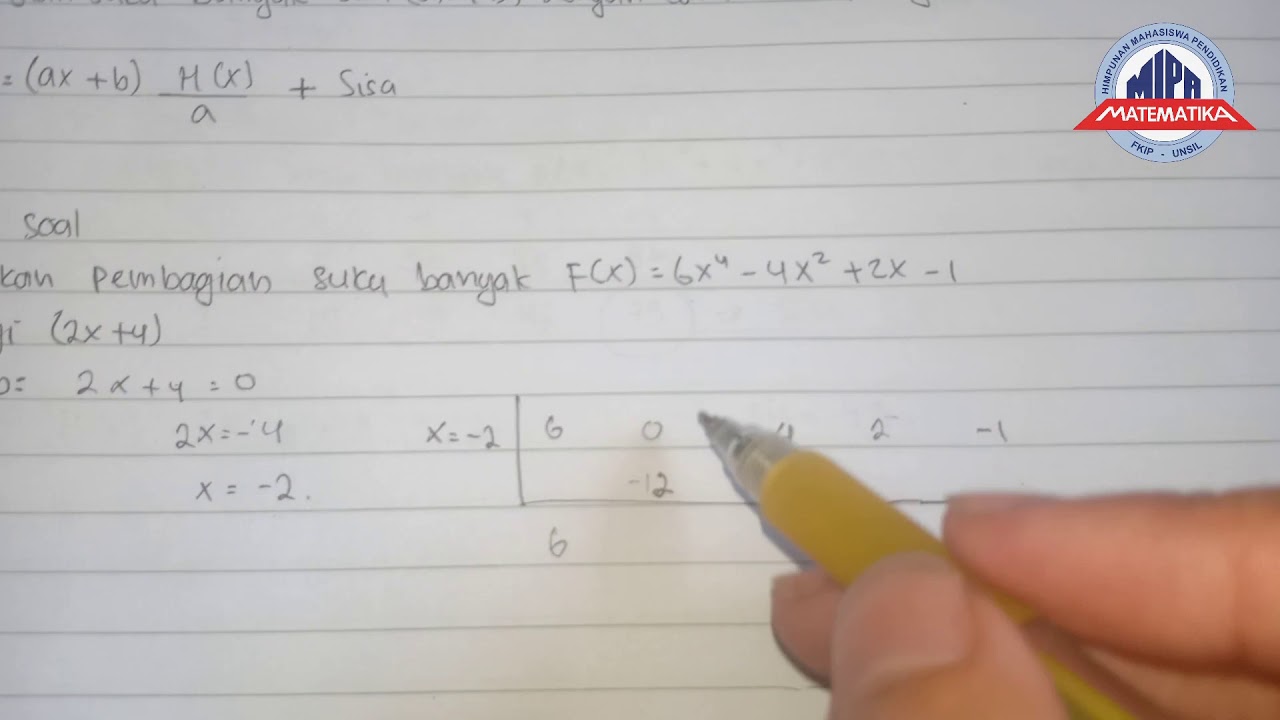 = (ax + b) H(x)/a + Sisa
soal
kan pembagian suku banyak F(x) = 6x⁴ - 4x² + 2x - 1
gi (2x + 4)
2x + 4 = 0
2x = -4
x = -2 6 0 4 2 -1
x = -2.
-12
6
HIMPUNAN MAHASISWA PENDIDIKAN
MIPA
MATEMATIKA
FKIP - UNSIL